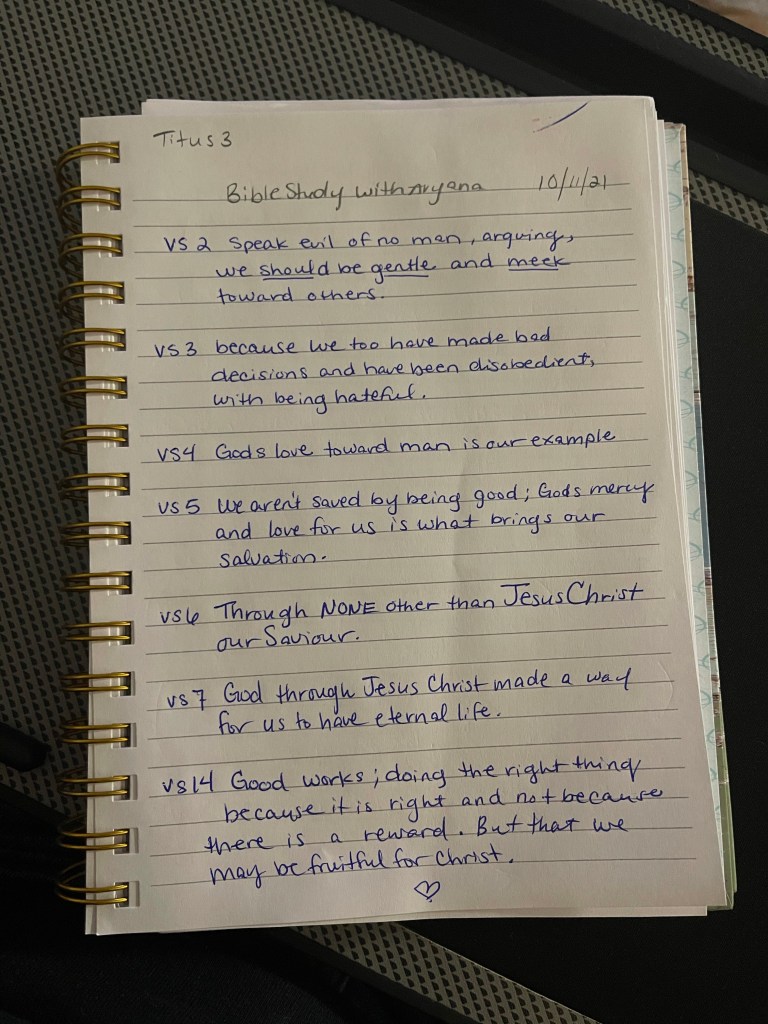 Titus 3
Bible Study with Aryana 10/11/21
VS 2 Speak evil of no man, arguing,
we should be gentle and meek
toward others.
VS 3 because we too have made bad
decisions and have been disobedient,
with being hateful.
VS4 Gods love toward man is our example
VS 5 We aren't saved by being good; Gods mercy
and love for us is what brings our
Salvation.
VS6 Through NONE other than Jesus Christ
our Saviour.
VS 7 God through Jesus Christ made a way
for us to have eternal life.
VS14 Good works; doing the right thing
because it is right and not because
there is a reward. But that we
may be fruitful for Christ.